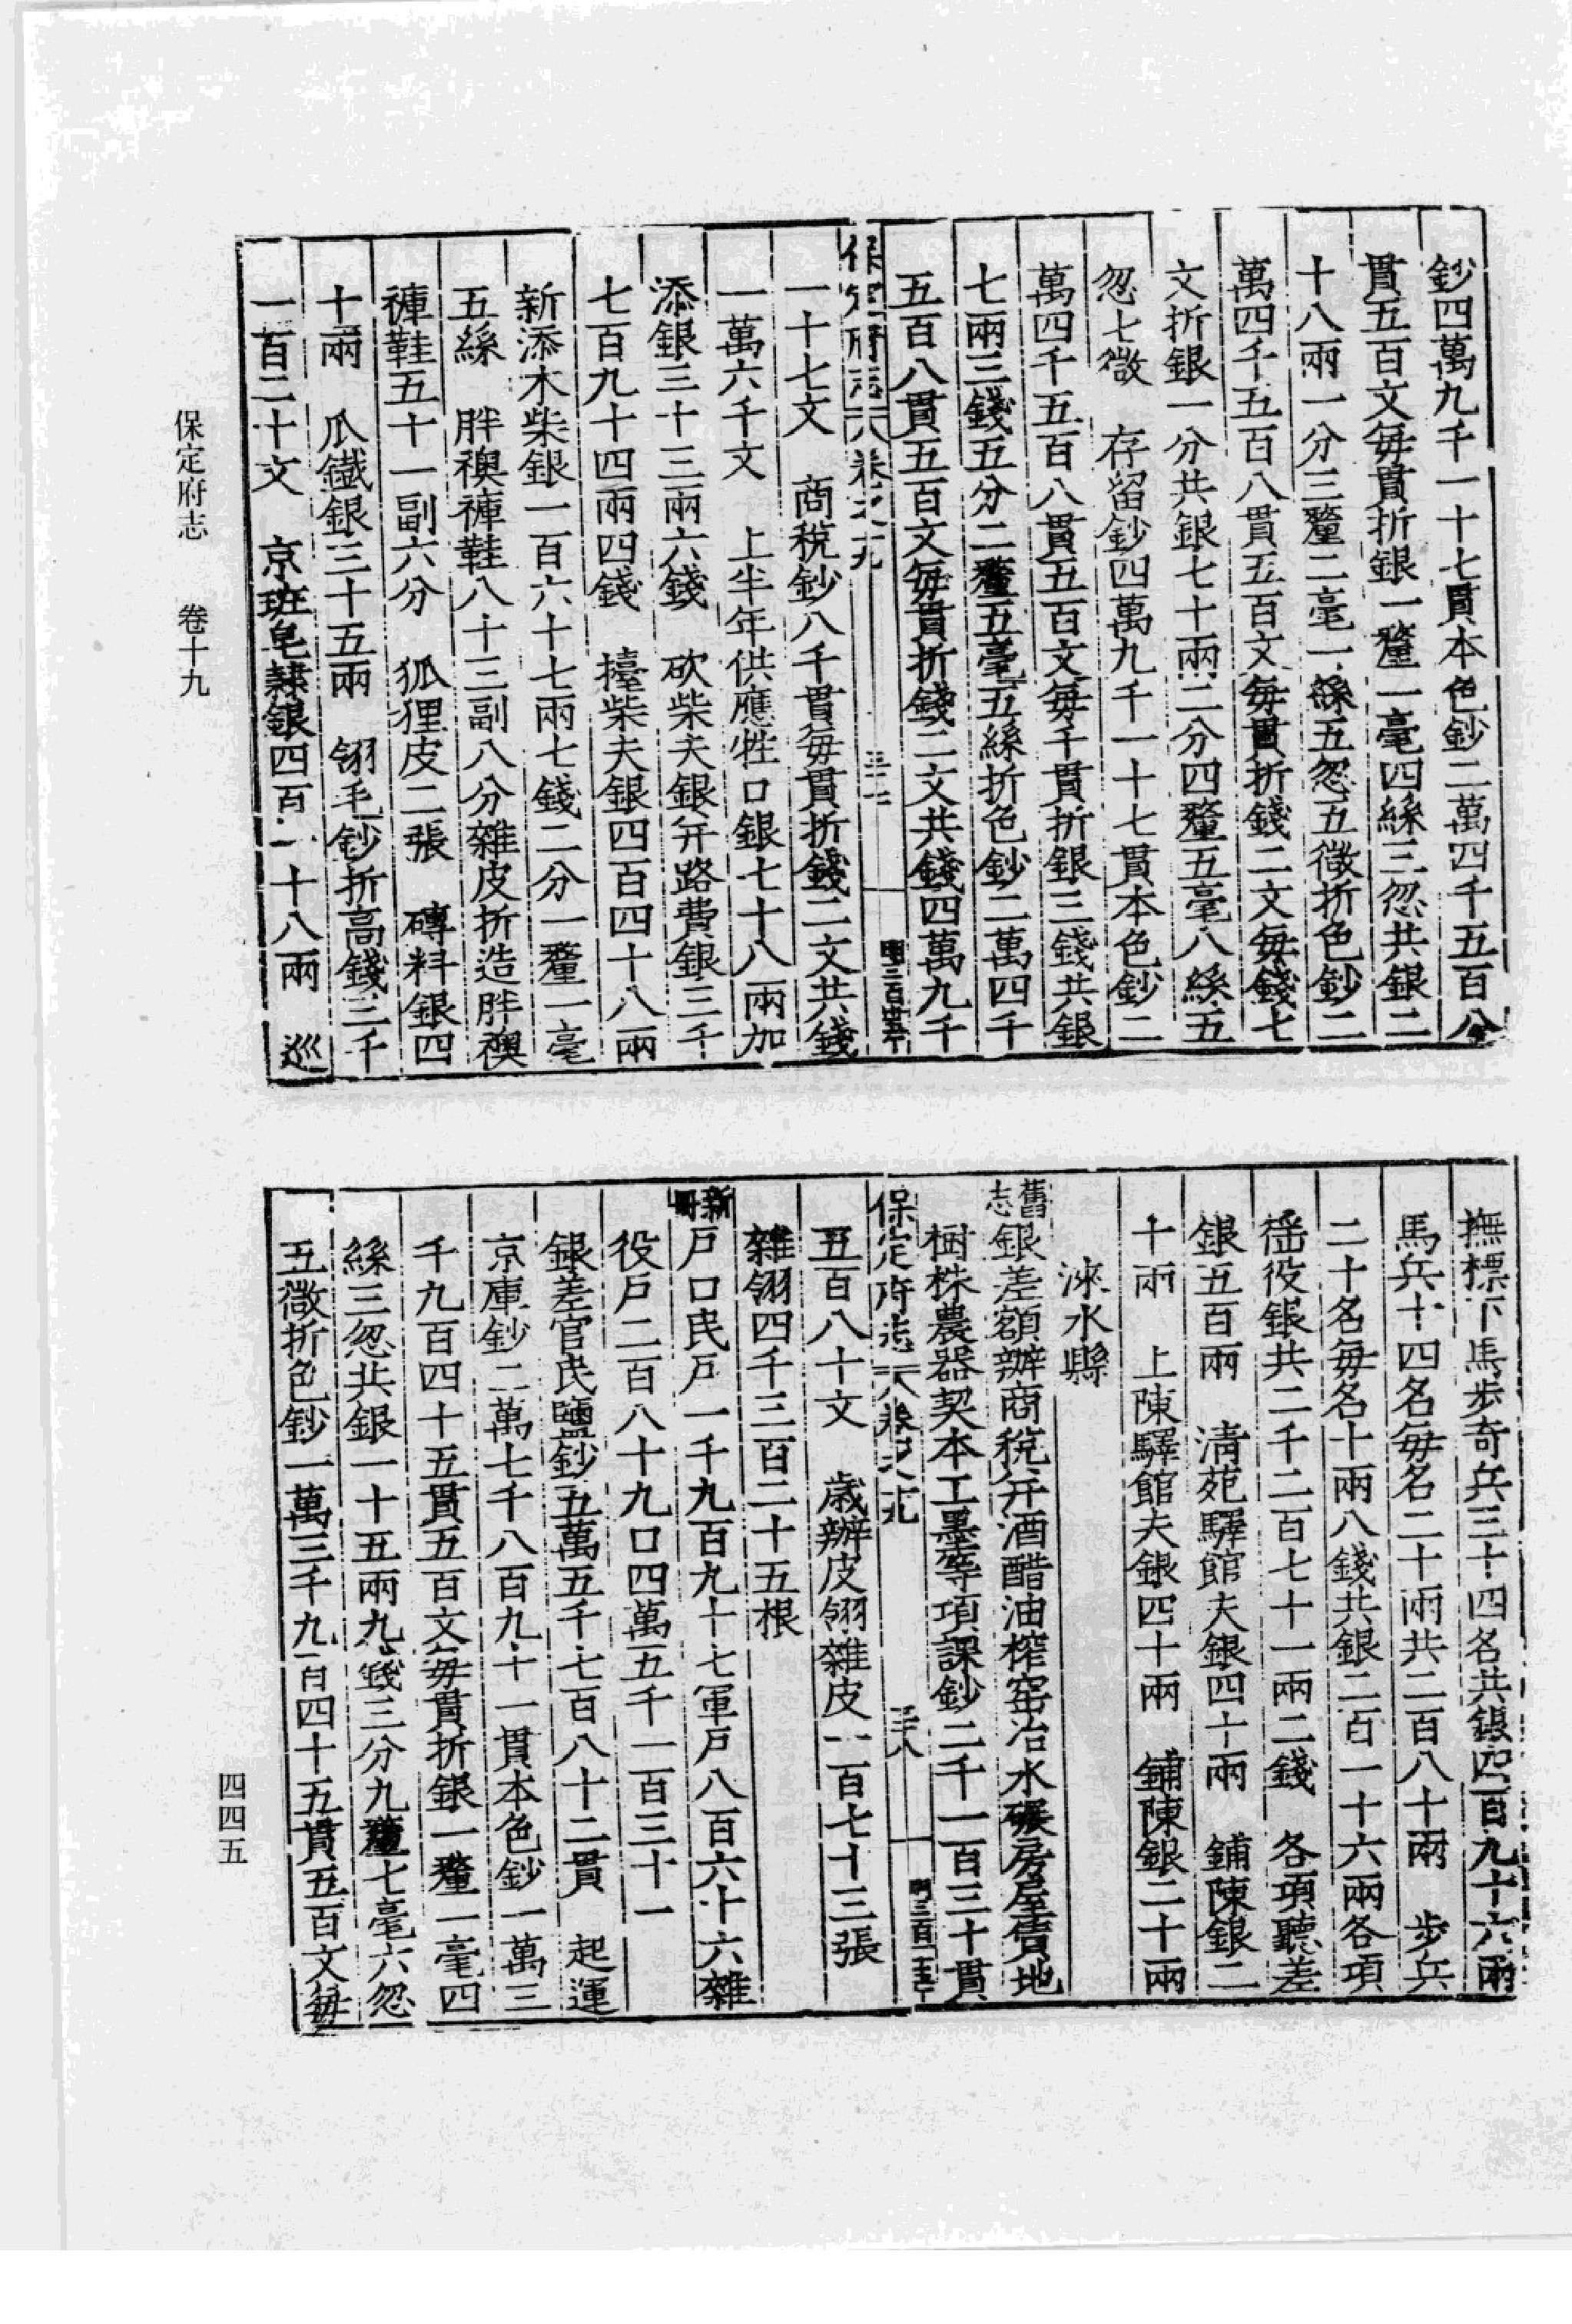 鈔四萬九千一十七貫本色鈔二萬四千五百八
貫五百文每貫折銀一釐一毫四絲三忽共銀二
十八兩一分三釐二毫一絲五忽五微折色鈔二
萬四千五百八貫五百文每貫折錢二文每錢七
文折銀一分共銀七十兩二分四釐五毫八絲五
忽七微　存留鈔四萬九千一十七貫本色鈔二
萬四千五百八貫五百文每千貫折銀三錢共銀
七兩三錢五分二釐五毫五絲折色鈔二萬四千
五百八貫五百文每貫折錢二文共錢四萬九千
保定府志　卷之十九　三十七
一十七文　商稅鈔八千貫每貫折錢二文共錢
一萬六千文　上半年供應牲口銀七十八兩加
添銀三十三兩六錢　砍柴夫銀并路費銀三千
七百九十四兩四錢　擡柴夫銀四百四十八兩
新添木柴銀一百六十七兩七錢二分一釐一毫
五絲　胖襖褲鞋八十三副八分雜皮折造胖襖
褲鞋五十一副六分　狐狸皮二張　磚料銀四
十兩　瓜鐵銀三十五兩　翎毛鈔折高錢三千
一百二十文　京班皂隸銀四百一十八兩　巡
撫標下馬步奇兵三十四名共銀四百九十六兩
馬兵十四名每名二十兩共二百八十兩　步兵
二十名每名十兩八錢共銀二百一十六兩各項
徭役銀共二千二百七十一兩二錢　各項聽差
銀五百兩　清苑驛館夫銀四十兩　鋪陳銀二
十兩　上陳驛館夫銀四十兩　鋪陳銀二十兩
淶水縣
舊志銀差額辦商稅并酒醋油榨窑冶水碾房屋賃地
樹株農器契本工墨等項課鈔二千一百三十貫
保定府志　卷之十九　三十八
五百八十文　歲辦皮翎雜皮一百七十三張
雜翎四千三百二十五根
新冊戶口民戶一千九百九十七軍戶八百六十六雜
役戶二百八十九口四萬五千一百三十一
銀差官民鹽鈔五萬五千七百八十二貫　起運
京庫鈔二萬七千八百九十一貫本色鈔一萬三
千九百四十五貫五百文每貫折銀一釐一毫四
絲三忽共銀一十五兩九錢三分九釐七毫六忽
五微折色鈔一萬三千九百四十五貫五百文每
保定府志　卷十九
四四五